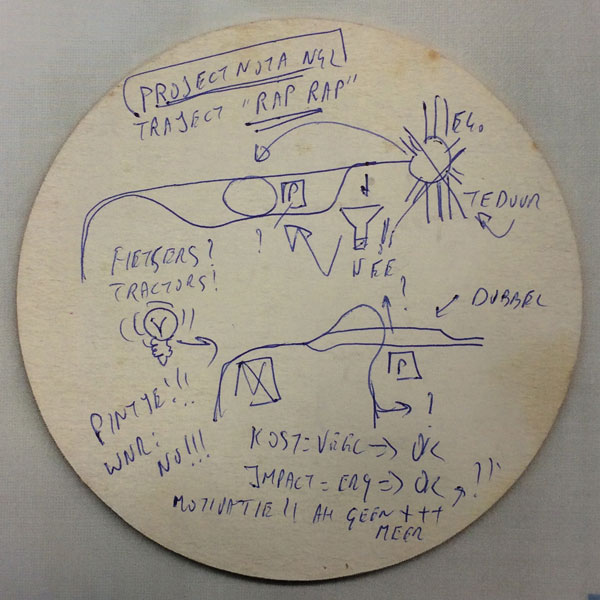 PROJECTNOTA N42
TRAJECT "RAP RAP"
E40
TE DUUR
P
?
!!
NEE
FIETSERS?
TRACTORS!
?
DUBBEL
P
PINTJE!!!
WNR:
NU!!!
?
KOST = VEEL => OK
IMPACT = ERG => OK, ?!!
MOTIVATIE!! AH GEEN +++
MEER